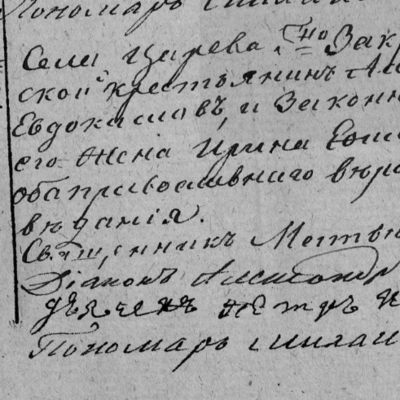 Пономарь Михаи
Села Царева Гно Закр
ской крестьянинъ Але
Евдокимовъ, и Законн
его Жена Ирина
оба православнаго веро
въданія.
Священникъ Матвѣ
Діаконъ Александръ
Дьячекъ Петръ
Пономарь Михаи